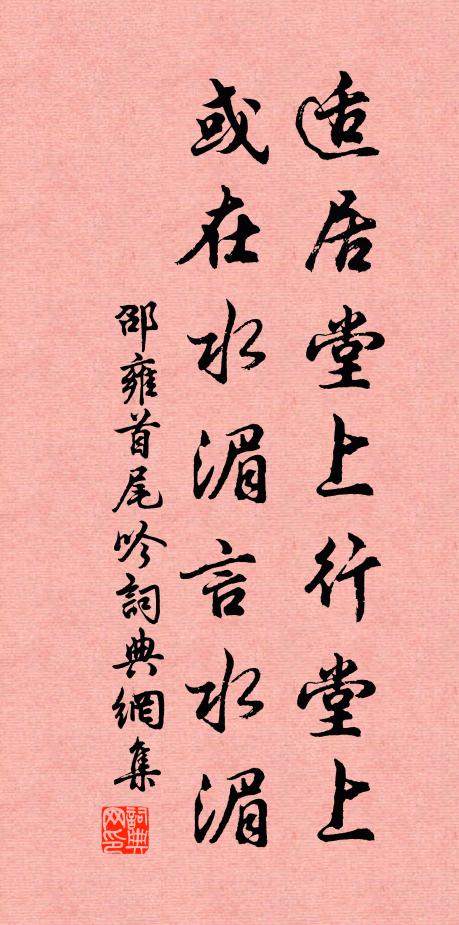 适居堂上行堂上
或在水湄言水湄
邵雍首尾吟詞典網集
詞典网印